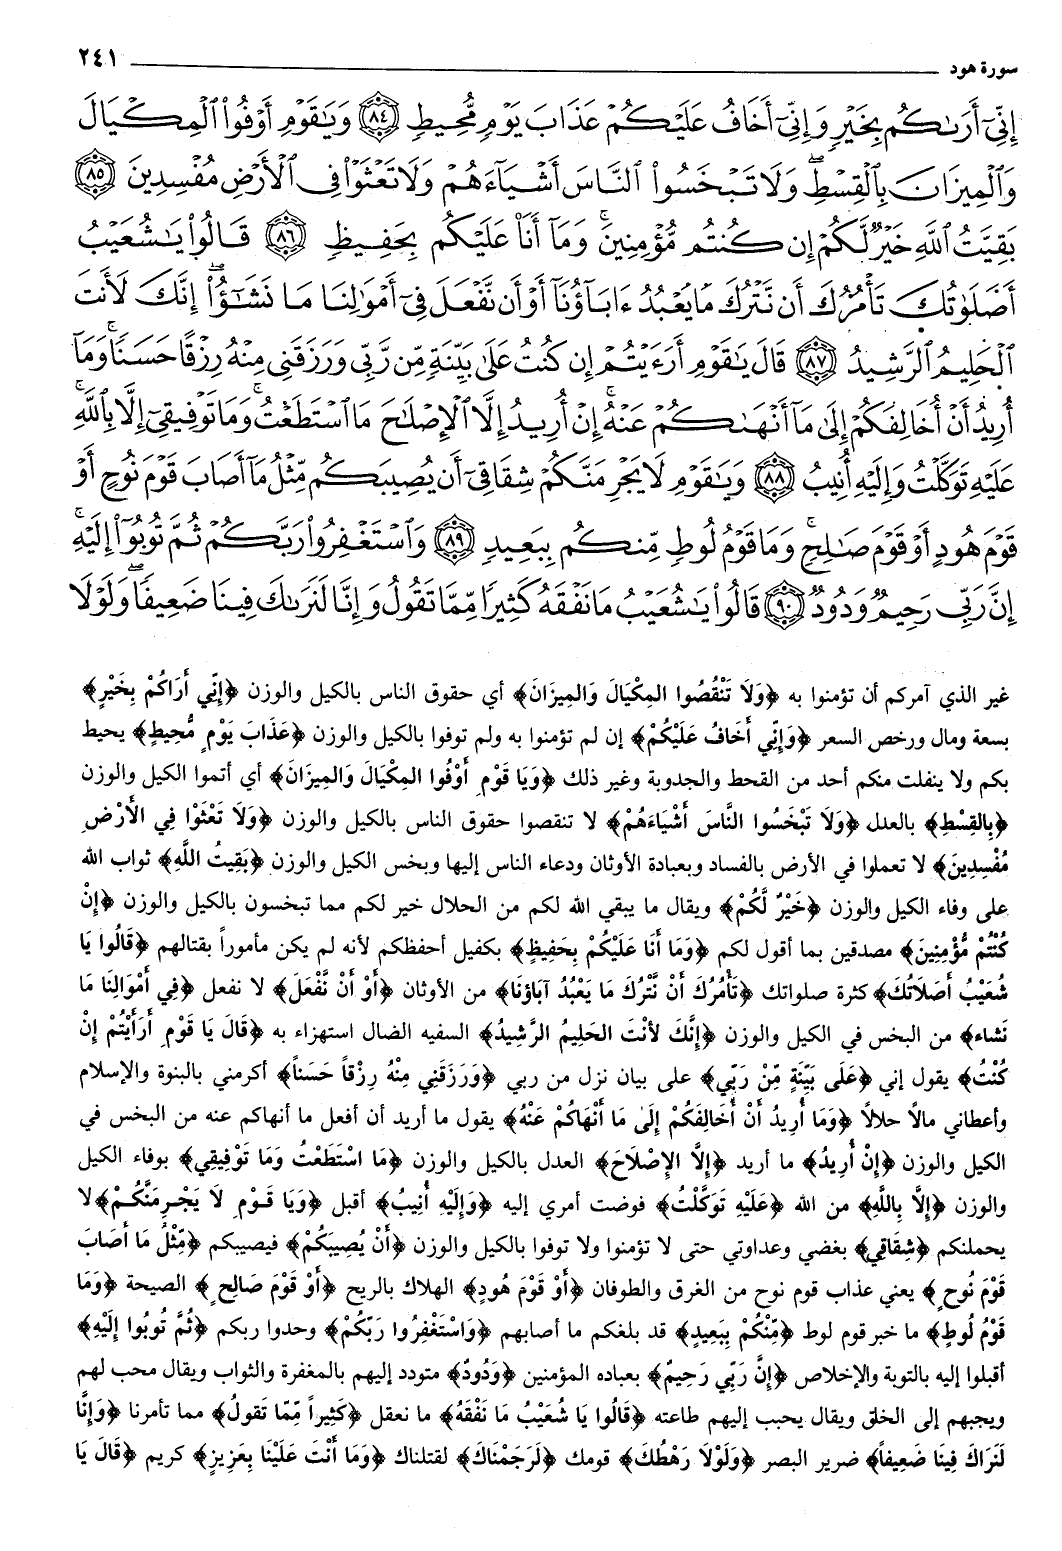 سورة هود ٢٤١
إِنِّىٓ أَرَىٰكُم بِخَيْرٍ وَإِنِّىٓ أَخَافُ عَلَيْكُمْ عَذَابَ يَوْمٍ مُّحِيطٍ ٨٤ وَيَٰقَوْمِ أَوْفُوا۟ ٱلْمِكْيَالَ
وَٱلْمِيزَانَ بِٱلْقِسْطِ ۖ وَلَا تَبْخَسُوا۟ ٱلنَّاسَ أَشْيَآءَهُمْ وَلَا تَعْثَوْا۟ فِى ٱلْأَرْضِ مُفْسِدِينَ ٨٥
بَقِيَّتُ ٱللَّهِ خَيْرٌ لَّكُمْ إِن كُنتُم مُّؤْمِنِينَ ۚ وَمَآ أَنَا۠ عَلَيْكُم بِحَفِيظٍ ٨٦ قَالُوا۟ يَٰشُعَيْبُ
أَصَلَوٰتُكَ تَأْمُرُكَ أَن نَّتْرُكَ مَا يَعْبُدُ ءَابَآؤُنَآ أَوْ أَن نَّفْعَلَ فِىٓ أَمْوَٰلِنَا مَا نَشَٰٓؤُا۟ ۖ إِنَّكَ لَأَنتَ
ٱلْحَلِيمُ ٱلرَّشِيدُ ٨٧ قَالَ يَٰقَوْمِ أَرَءَيْتُمْ إِن كُنتُ عَلَىٰ بَيِّنَةٍ مِّن رَّبِّى وَرَزَقَنِى مِنْهُ رِزْقًا حَسَنًا ۚ وَمَآ
أُرِيدُ أَنْ أُخَالِفَكُمْ إِلَىٰ مَآ أَنْهَىٰكُمْ عَنْهُ ۚ إِنْ أُرِيدُ إِلَّا ٱلْإِصْلَٰحَ مَا ٱسْتَطَعْتُ ۚ وَمَا تَوْفِيقِىٓ إِلَّا بِٱللَّهِ ۚ
عَلَيْهِ تَوَكَّلْتُ وَإِلَيْهِ أُنِيبُ ٨٨ وَيَٰقَوْمِ لَا يَجْرِمَنَّكُمْ شِقَاقِىٓ أَن يُصِيبَكُم مِّثْلُ مَآ أَصَابَ قَوْمَ نُوحٍ أَوْ
قَوْمَ هُودٍ أَوْ قَوْمَ صَٰلِحٍ ۚ وَمَا قَوْمُ لُوطٍ مِّنكُم بِبَعِيدٍ ٨٩ وَٱسْتَغْفِرُوا۟ رَبَّكُمْ ثُمَّ تُوبُوٓا۟ إِلَيْهِ ۚ
إِنَّ رَبِّى رَحِيمٌ وَدُودٌ ٩٠ قَالُوا۟ يَٰشُعَيْبُ مَا نَفْقَهُ كَثِيرًا مِّمَّا تَقُولُ وَإِنَّا لَنَرَىٰكَ فِينَا ضَعِيفًا ۖ وَلَوْلَا
غير الذي آمركم أن تؤمنوا به ﴿وَلَا تَنْقُصُوا المِكْيَالَ وَالمِيزَانَ﴾ أي حقوق الناس بالكيل والوزن ﴿إِنِّي أَرَاكُمْ بِخَيْرٍ﴾
بسعة ومال ورخص السعر ﴿وَإِنِّي أَخَافُ عَلَيْكُمْ﴾ إن لم تؤمنوا به ولم توفوا بالكيل والوزن ﴿عَذَابَ يَوْمٍ مُّحِيطٍ﴾ يحيط
بكم ولا ينفلت منكم أحد من القحط والجدوبة وغير ذلك ﴿وَيَا قَوْمِ أَوْفُوا المِكْيَالَ وَالمِيزَانَ﴾ أي أتموا الكيل والوزن
﴿بِالقِسْطِ﴾ بالعدل ﴿وَلَا تَبْخَسُوا النَّاسَ أَشْيَاءَهُمْ﴾ لا تنقصوا حقوق الناس بالكيل والوزن ﴿وَلَا تَعْثَوْا فِي الأَرْضِ
مُفْسِدِينَ﴾ لا تعملوا في الأرض بالفساد وبعبادة الأوثان ودعاء الناس إليها وبخس الكيل والوزن ﴿بَقِيتُ اللَّهِ﴾ ثواب الله
على وفاء الكيل والوزن ﴿خَيْرٌ لَّكُمْ﴾ ويقال ما يبقي الله لكم من الحلال خير لكم مما تبخسون بالكيل والوزن ﴿إِنْ
كُنْتُمْ مُّؤْمِنِينَ﴾ مصدقين بما أقول لكم ﴿وَمَا أَنَا عَلَيْكُمْ بِحَفِيظٍ﴾ بكفيل أحفظكم لأنه لم يكن مأموراً بقتالهم ﴿قَالُوا يَا
شُعَيْبُ أَصَلَاتُكَ﴾ كثرة صلواتك ﴿تَأْمُرُكَ أَنْ نَّتْرُكَ مَا يَعْبُدُ آبَاؤُنَا﴾ من الأوثان ﴿أَوْ أَنْ نَّفْعَلَ﴾ لا نفعل ﴿فِي أَمْوَالِنَا مَا
نَشاء﴾ من البخس في الكيل والوزن ﴿إِنَّكَ لأَنْتَ الحَلِيمُ الرَّشِيدُ﴾ السفيه الضال استهزاء به ﴿قَالَ يَا قَوْمِ أَرَأَيْتُمْ إِنْ
كُنْتُ﴾ يقول إني ﴿عَلَى بَيِّنَةٍ مِّنْ رَبِّي﴾ على بيان نزل من ربي ﴿وَرَزَقَنِي مِنْهُ رِزْقاً حَسَناً﴾ أكرمني بالنبوة والإسلام
وأعطاني مالاً حلالاً ﴿وَمَا أُرِيدُ أَنْ أُخَالِفَكُمْ إِلَىٰ مَا أَنْهَاكُمْ عَنْهُ﴾ يقول ما أريد أن أفعل ما أنهاكم عنه من البخس في
الكيل والوزن ﴿إِنْ أُرِيدُ﴾ ما أريد ﴿إِلَّا الإِصْلَاحَ﴾ العدل بالكيل والوزن ﴿مَا اسْتَطَعْتُ وَمَا تَوْفِيقِي﴾ بوفاء الكيل
والوزن ﴿إِلَّا بِاللَّهِ﴾ من الله ﴿عَلَيْهِ تَوَكَّلْتُ﴾ فوضت أمري إليه ﴿وَإِلَيْهِ أُنِيبُ﴾ أقبل ﴿وَيَا قَوْمِ لَا يَجْرِمَنَّكُمْ﴾ لا
يحملنكم ﴿شِقَاقِي﴾ بغضي وعداوتي حتى لا تؤمنوا ولا توفوا بالكيل والوزن ﴿أَنْ يُصِيبَكُمْ﴾ فيصيبكم ﴿مِّثْلُ مَا أَصَابَ
قَوْمَ نُوحٍ﴾ يعني عذاب قوم نوح من الغرق والطوفان ﴿أَوْ قَوْمَ هُودٍ﴾ الهلاك بالريح ﴿أَوْ قَوْمَ صَالِحٍ﴾ الصيحة ﴿وَمَا
قَوْمُ لُوطٍ﴾ ما خبر قوم لوط ﴿مِّنْكُمْ بِبَعِيدٍ﴾ قد بلغكم ما أصابهم ﴿وَاسْتَغْفِرُوا رَبَّكُمْ﴾ وحدوا ربكم ﴿ثُمَّ تُوبُوا إِلَيْهِ﴾
أقبلوا إليه بالتوبة والإخلاص ﴿إِنَّ رَبِّي رَحِيمٌ﴾ بعباده المؤمنين ﴿وَدُودٌ﴾ متودد إليهم بالمغفرة والثواب ويقال محب لهم
ويجبهم إلى الخلق ويقال يحبب إليهم طاعته ﴿قَالُوا يَا شُعَيْبُ مَا نَفْقَهُ﴾ ما نعقل ﴿كَثِيراً مِّمَّا تَقُولُ﴾ مما تأمرنا ﴿وَإِنَّا
لَنَرَاكَ فِينَا ضَعِيفاً﴾ ضرير البصر ﴿وَلَوْلَا رَهْطُكَ﴾ قومك ﴿لَرَجَمْنَاكَ﴾ لقتلناك ﴿وَمَا أَنْتَ عَلَيْنَا بِعَزِيزٍ﴾ كريم ﴿قَالَ يَا